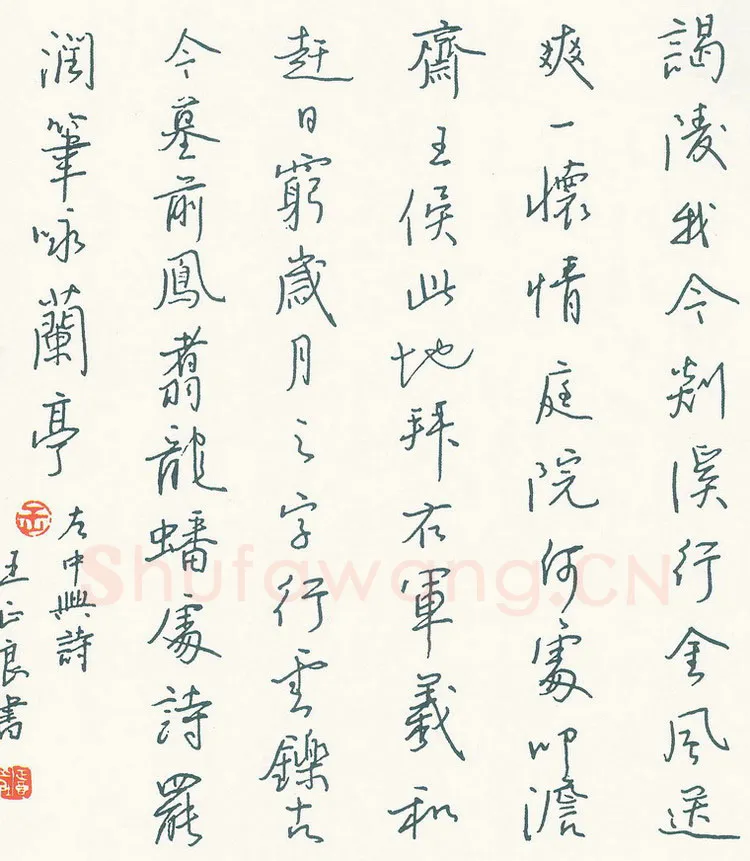 謁陵我今剡溪行金風送
爽一懷情庭院何處叩澹
齋王侯此地拜右軍羲和
赶日窮歲月之字行雲鑠古
今墓前鳳翥龍蟠處詩罷
潤筆咏蘭亭
左中興詩
王正良書
Shufawang.CN